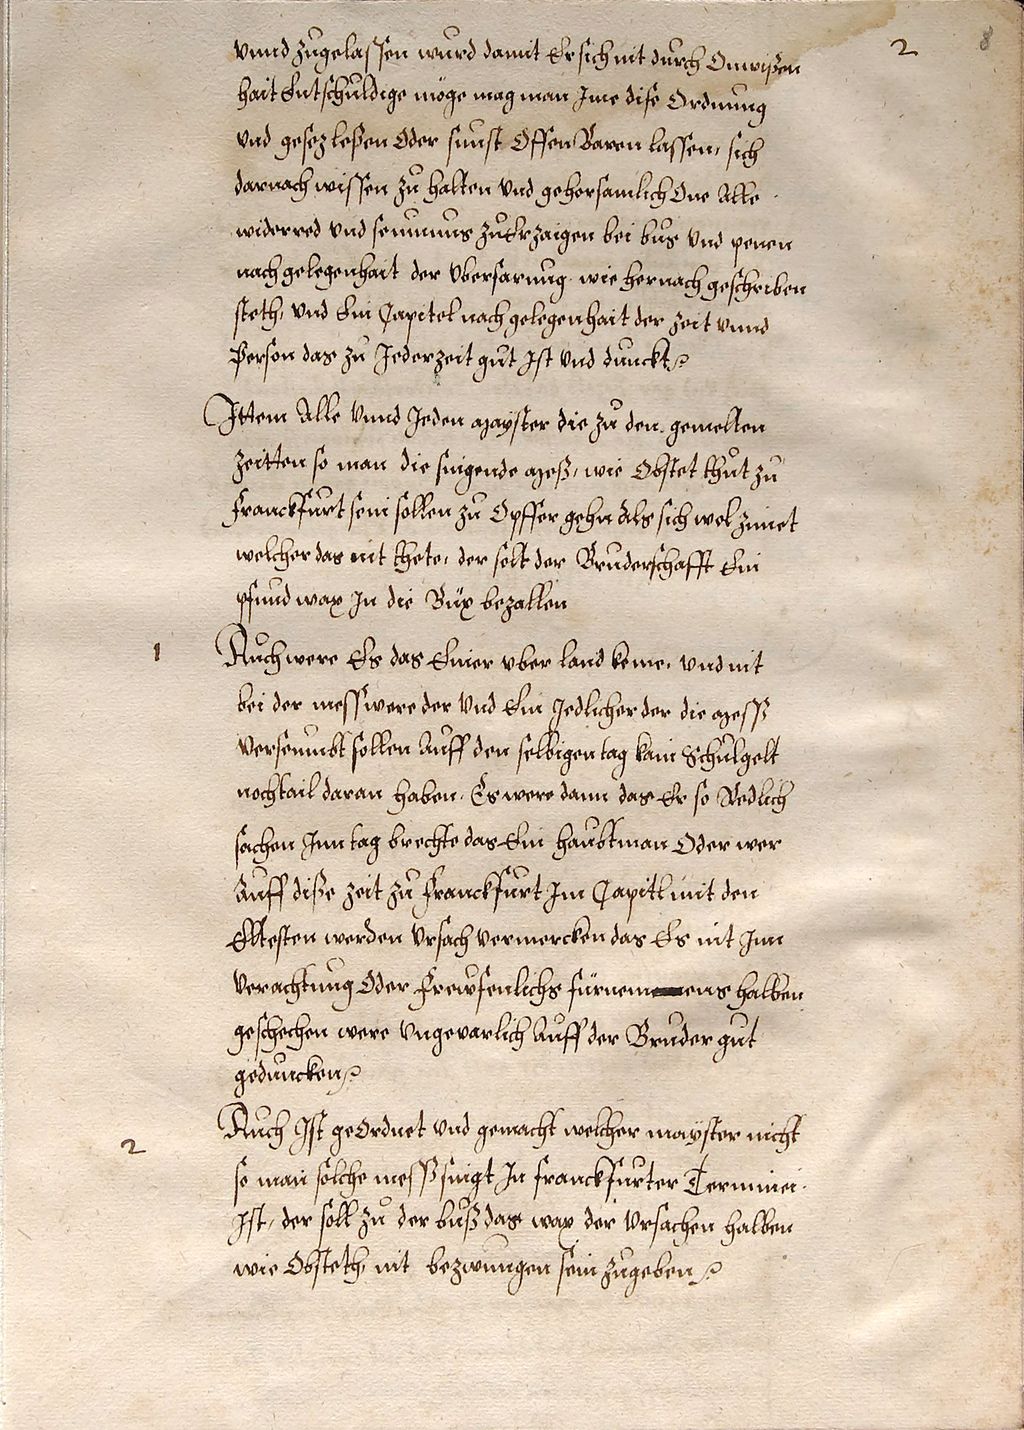 2 8
vnnd zugelassen wurd damit Er sich nit durch Onwißen
hait Entschuldige möge mag man Ime dise Ordnung
vnd gesez leßen Oder sunst Offen Baren lassen, sich
darnach wissen zu halten vnd gehorsamlich One Alle
widerred vnd seumnus zu Erzaigen bei bus vnd penen
nach gelegenhait der vberfarnug wie hernach geschriben
steth, vnd Ein Capitel nach gelegenhait der zeit vnnd
Person das zu Jederzeit gut Ist vnd dunckt
Ittem Alle vnnd Jeden Mayster die zu den gemelten
zeitten so man die singende Meß, wie Obstet thut zu
Franckfurt sein sollen zu Opffer gehn Als sich wol zimet
welcher das nit thete, der solt der Bruderschafft Ein
pfund wax In die Büx bezallen
1 Auch were Es das Einer vber land keme, vnd nit
bei der mess were der vnd Ein Jedlicher der die Mess
verseumbt sollen Auff den selbigen tag kain Schulgelt
noch tail daran haben, Es were dann das Er so Redlich
sachen Inn tag brechte das Ein haubtman Oder wer
Auff diße zeit zu Franckfurt Im Capitl mit den
Eltesten werden vrsach vermercken das Es nit Inn
verachtung Oder Frewfenlichs fürnemens halben
geschechen were vngevarlich Auff der Bruder gut
geduncken
2 Auch Ist geOrdnet vnd gemacht welcher mayster nicht
so man solche mess singt In franckfurter Terminei
Ist, der soll zu der buß das wax der vrsachen halben
wie Obsteth, nit bezwungen sein zugeben